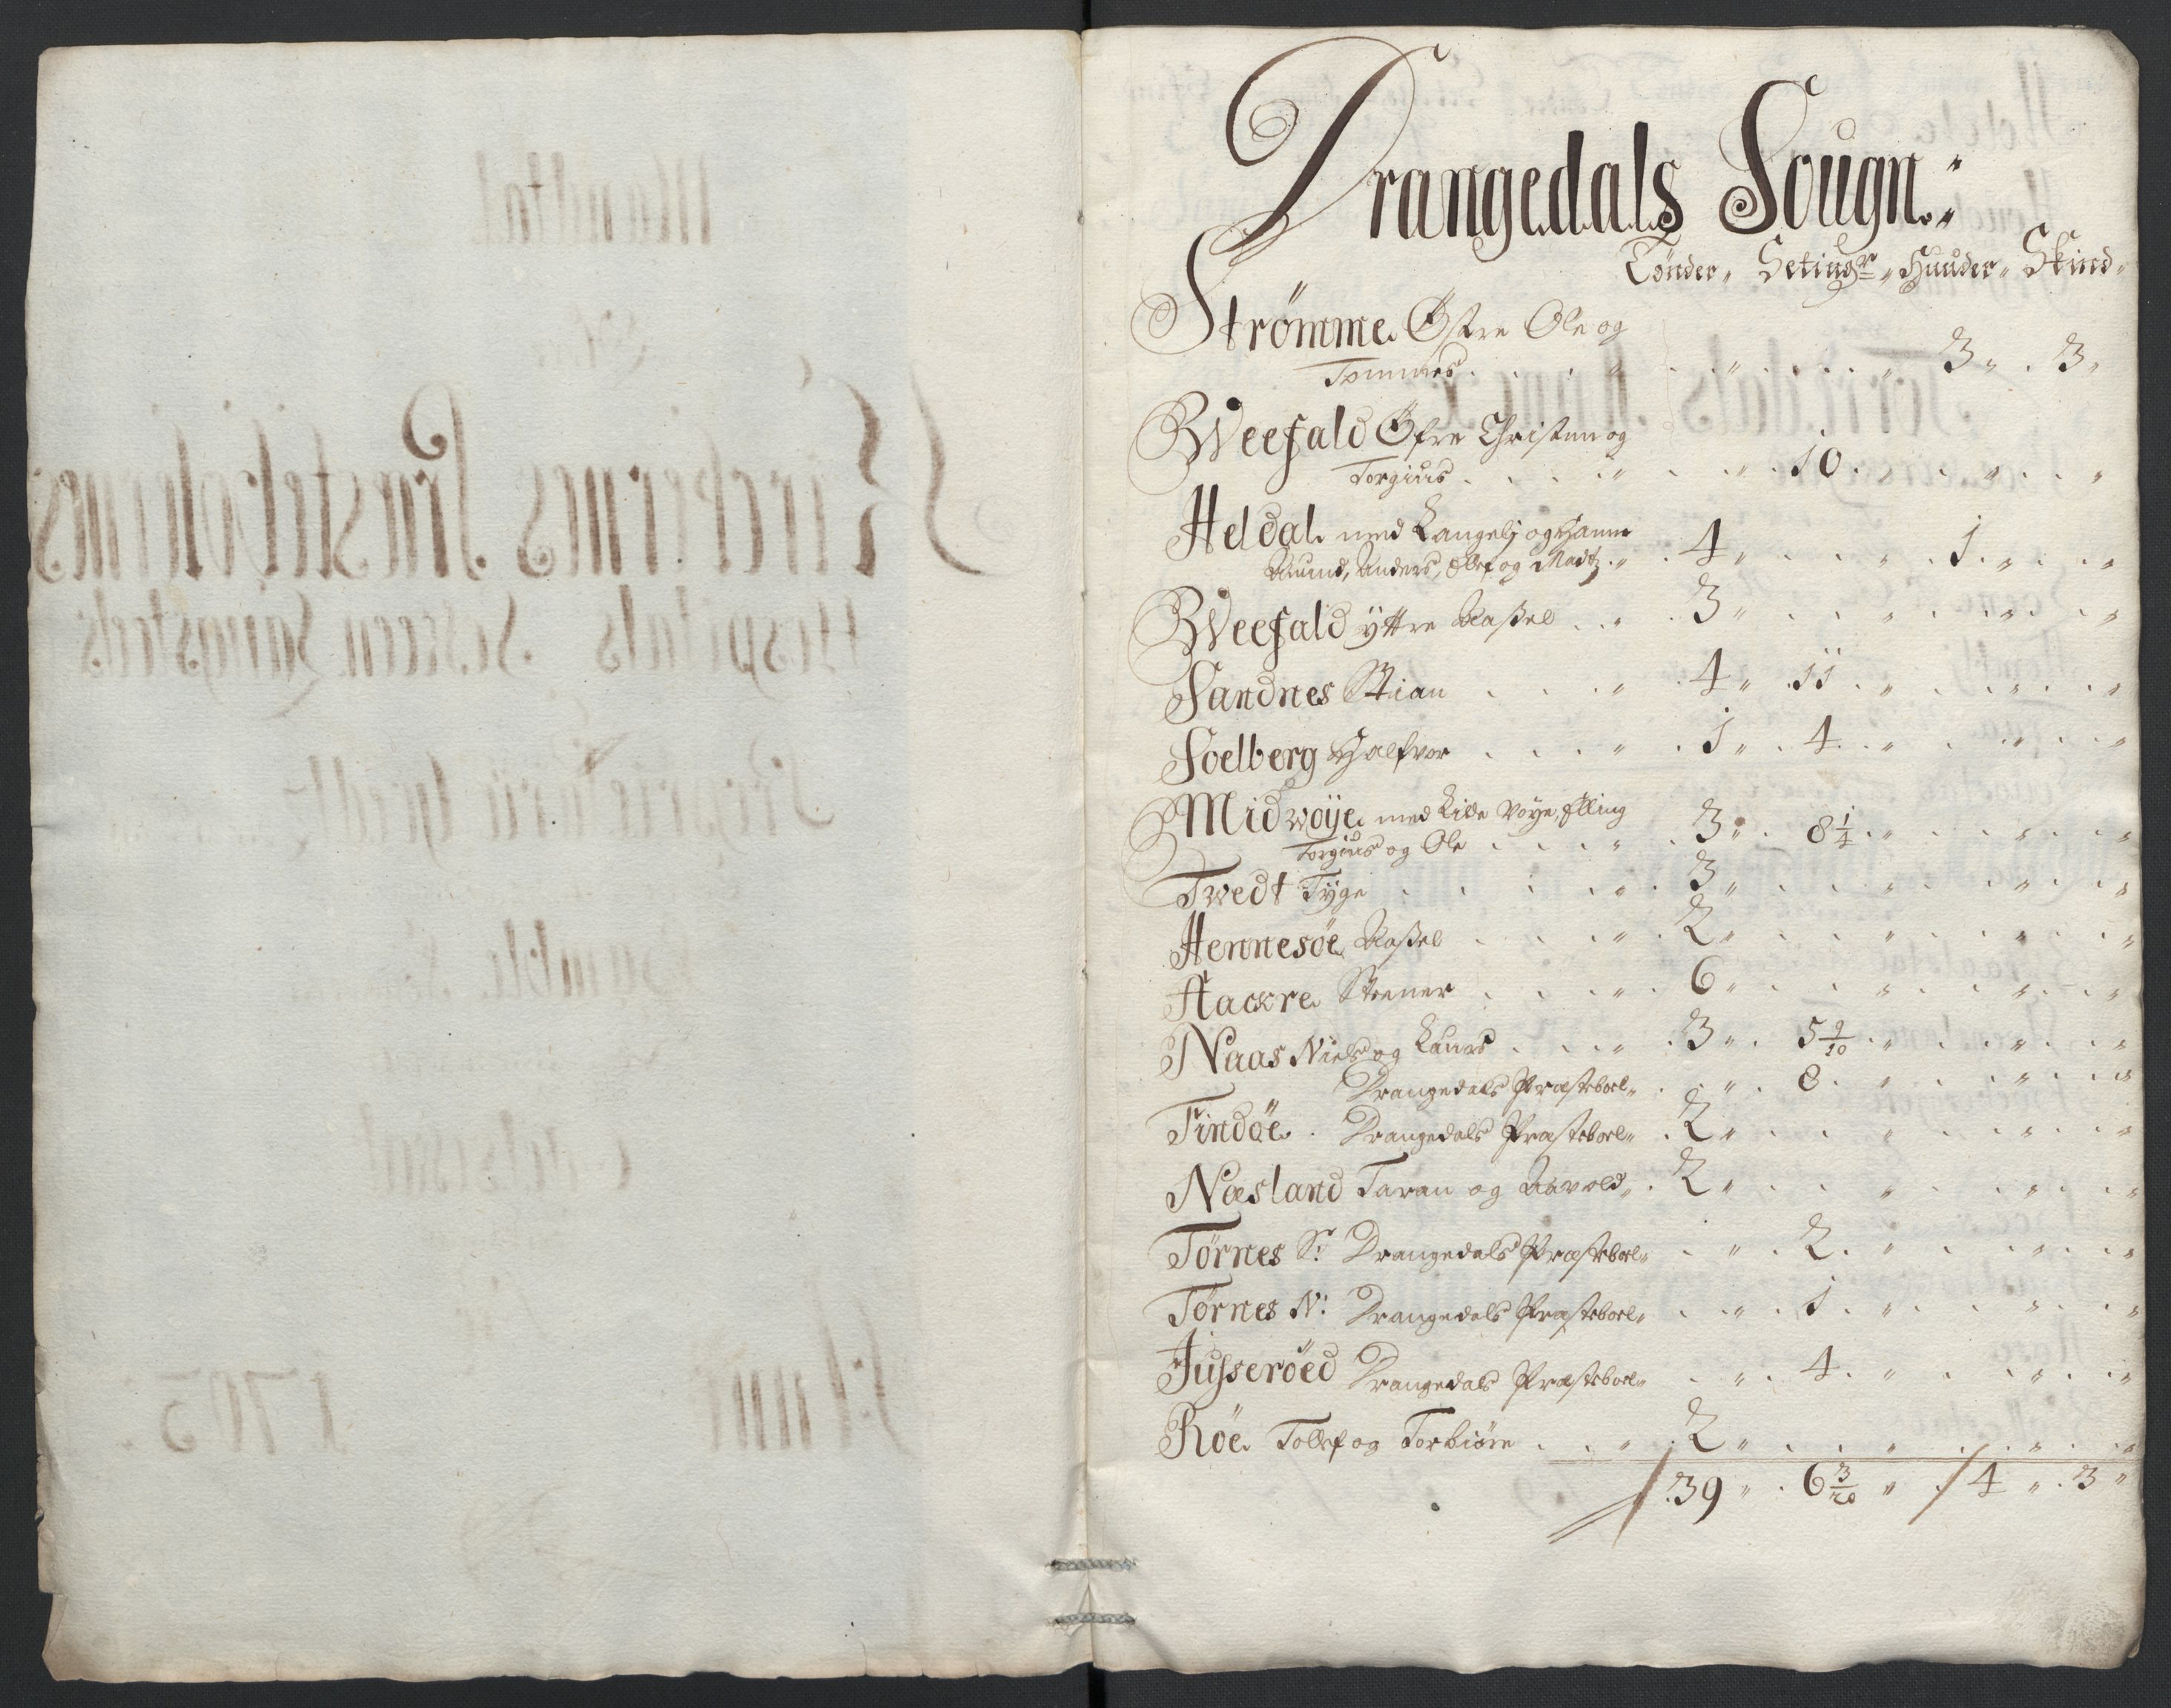 Drangedals Sougn
Tønder, Setingr, Huuder, Skind
Strömme Østre Ole og
Tommes 3 3
Weefald Øfre Christen og
Torgiuus 10
Heldal med Langelj og
Amund, Anders, Olef og Madtz 4 1
Weefald yttre Aassel 3
Sandnes Stian 4 11
Soelberg Halfvor 1 4
Midwöye med Lille Vöye, Elling
Torgiuus og Ole 3 8 1/4
Twedt Tyge 3
Hennesöe Aassel 2
Aackre Steener 6
Naas Niels og Laurs 3 5 9/10
Drangedals Præsteboel 8
Tindöe Drangedals Præsteboel 2
Næsland Taran og Aavold 2
Törnes S: Drangedals Præsteboel 2
Törnes N: Drangedals Præsteboel 1
Jusseröed Drangedals Præsteboel 4
Röe Tollef og Torbiörn 2
39 6 3/20 4 3